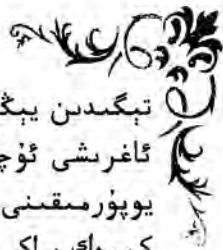 تېگىدىن يېڭ
ئاغرىشى ئۈچ
يوپۇرمىقىنى